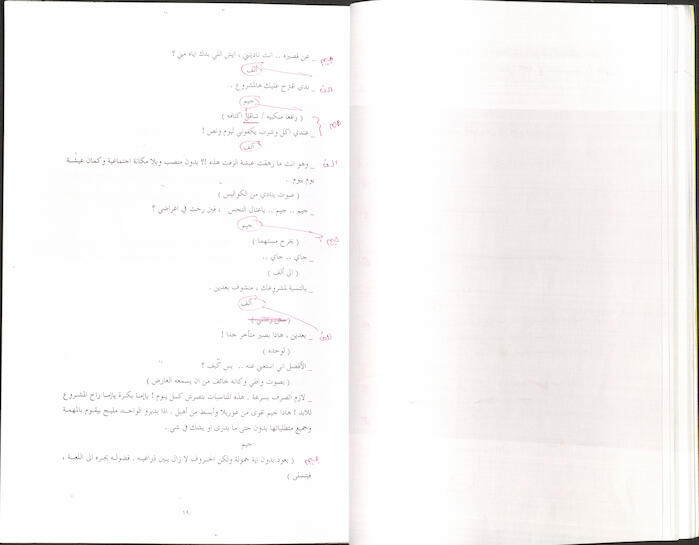 _ عن قصيره .. انت ناديتني ، ايش اللي بدك اياه مني ؟
جيم
ألف
_ بدي اقترح عليك هالمشروع .
الف
جيم
( رافعا منكبيه / شاقل اكتافه )
جيم
_ عندي اكل وشرب يكفوني ليوم ونص !
ألف
_ وهو انت ما زهقت عيشة الزفت هذه !؟ بدون منصب وبلا مكانة اجتماعية وكمان عيشـة
الف
يوم بيوم .
( صوت ينادي من الكواليس )
_ جيم .. جيم .. ياعتال النحس ، فين رحت في اغراضي ؟
جيم
( يخرج مستهما )
جيم
_ جاي .. جاي ..
( الى ألف )
_ بالنسبة لمشروعك ، منشوف بعدين .
ألف
_ بعدين ، هاذا بصير متأخر جدا !
الف
( لوحده )
_ الأفضل اني استغني عنه .. بس كيف ؟
( بصوت واطي وكانه خائف من ان يسمعه العارض )
_ لازم اتصرف بسرعة . هذه المناسبات بتصرش كـل يـوم ! ياإمـا بكـرة ياإمـا راح المشـروع
للابد ! هاذا جيم اقوى من غوريلا وأبسط من أهبل . اذا بديرو الواحـد مليـح بيقـوم بالمهمـة
وجميع متطلباتها بدون حتى ما يدرى او يشك في شي .
جيم
( يعود بدون اية حمولة ولكن الخـروف لا زال بـين ذراعيـه . فضولـه يجـره الى اللعبـة ،
جيم
فيتسلى )
١٩